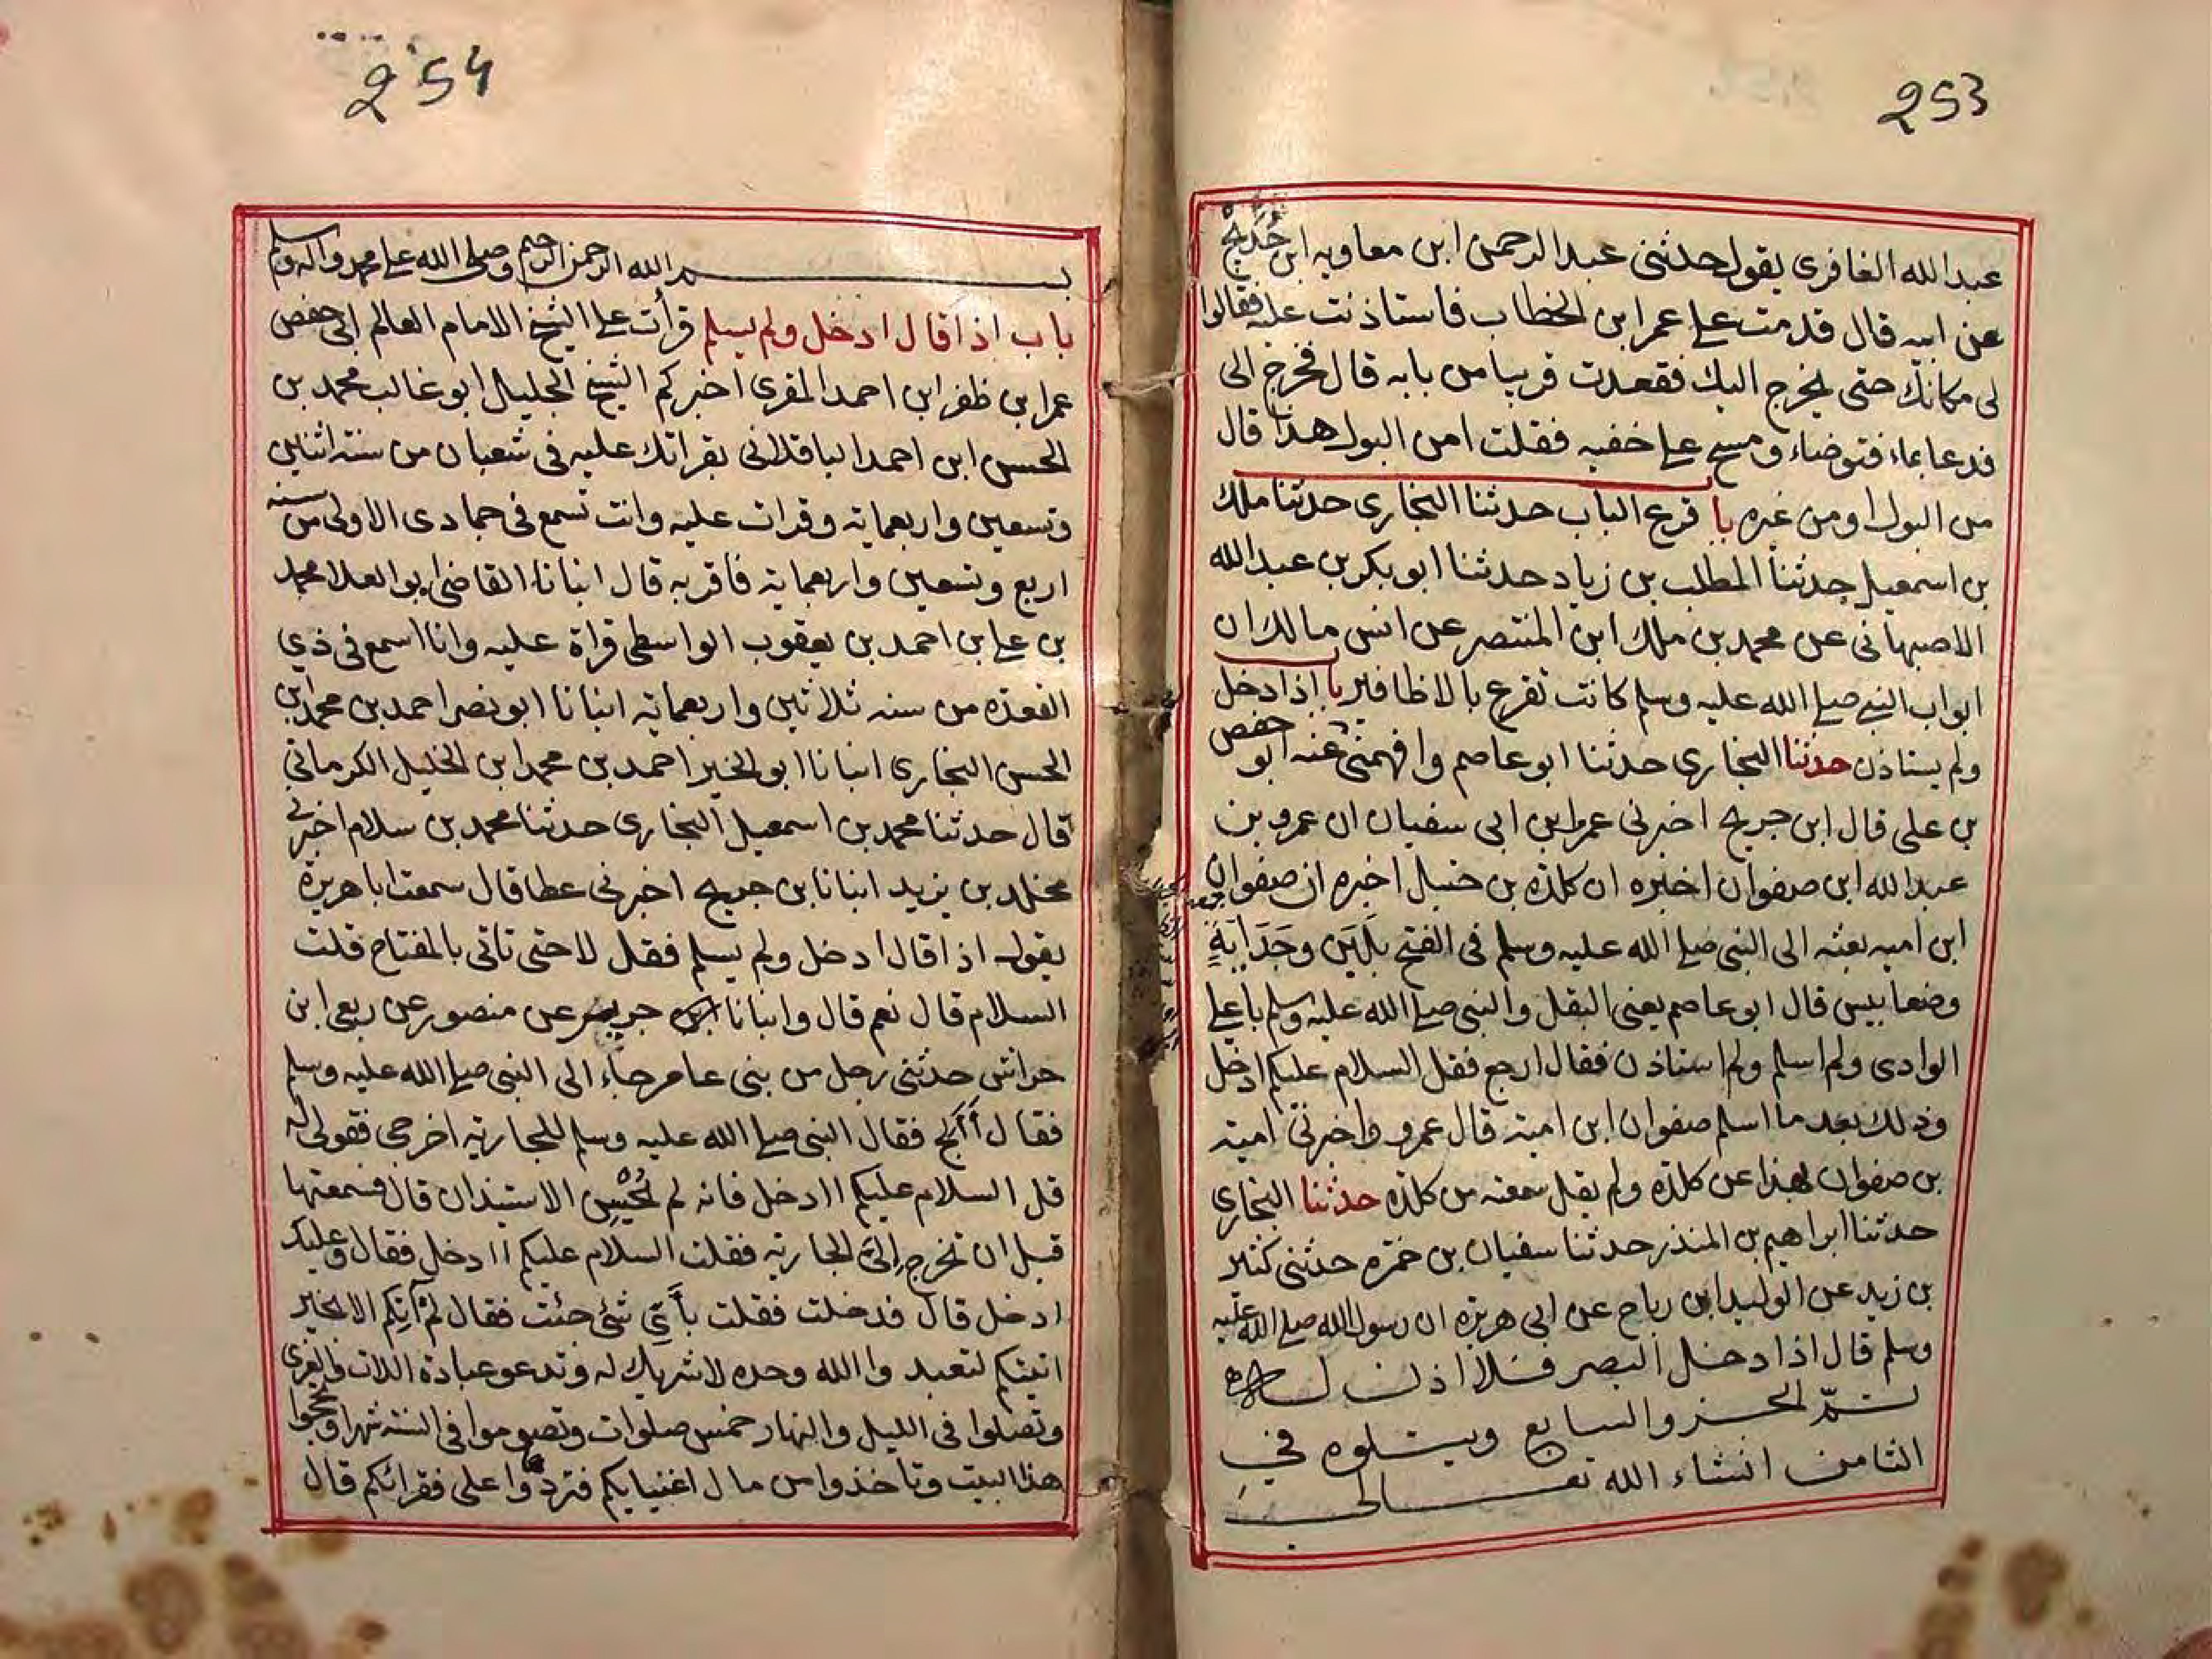 253
عبدالله الغافرى يقول حدثنى عبد الرحمن ابن معاويه ابن حُدَيْج
عن ابيه قال قدمت على عمر ابن الخطاب فاستاذنت عليه فقالوا
لى مكانك حتى يخرج اليك فقعدت قريبا من بابه قال فخرج الى
فدعا بماء فتوضاء ومسح على خفيه فقلت امن البول هذا قال
من البول او من غيره با قرع الباب حدثنا البخارى حدثنا ملك
بن اسمعيل حدثنا المطلب بن زياد حدثنا ابو بكر بن عبدالله
الاصبهانى عن محمد بن ملك ابن المنتصر عن انس مالك ان
ابواب النبى صلى الله عليه وسلم كانت تقرع بالاظافير با اذا دخل
ولم يستاذن حدثنا البخارى حدثنا ابو عاصم وافهمنى عنه ابو حفص
بن على قال ابن جريج اخبرنى عمرو ابن ابى سفيان ان عمرو بن
عبدالله ابن صفوان اخبره ان كلدة بن حنبل اخبره ان صفوان
ابن اميه بعثه الى النبى صلى الله عليه وسلم فى الفتح بلبن وجَدَايَةٍ
وضغابيس قال ابو عاصم يعنى البقل والنبى صلى الله عليه وسلم باعلى
الوادى ولم اسلم ولم استاذن فقال ارجع فقل السلام عليكم ادخل
وذلك بعد ما اسلم صفوان ابن امية قال عمرو واخبرنى امية
بن صفوان بهذا عن كلدة ولم يقل سمعته من كلدة حدثنا البخارى
حدثنا ابراهيم بن المنذر حدثنا سفيان بن حمزه حدثنى كثير
بن زيد عن الوليد ابن رباح عن ابى هريرة ان رسول الله صلى الله عليه
وسلم قال اذا دخل البصر فلا اذن له
تمّ الجزو السابع ويتلوه في
الثامن انشاء الله تعالى
254
بسم الله الرحمن الرحيم وصلى الله على محمد واله وسلم
باب اذا قال ادخل ولم يسلم قرأت على الشيخ الامام العالم ابى حفص
عمر ابن ظفر ابن احمد المقرى اخبركم الشيخ الجليل ابو غالب محمد بن
الحسن ابن احمد الباقلانى بقراتك عليه فى شعبان من سنة اثنين
وتسعين واربعمايه وقرات عليه وانت تسمع فى جمادى الاولى من سنه
اربع وتسعين واربعماية فاقر به قال انبانا القاضى ابو العلا محمد
بن على بن احمد بن يعقوب الواسطى قراة عليه وانا اسمع فى ذي
القعده من سنه ثلاثين واربعمايه انبانا ابو نصر احمد بن محمد ابن
الحسن البخارى انبانا ابو الخير احمد بن محمد ابن الخليل الكرمانى
قال حدثنا محمد بن اسمعيل البخارى حدثنا محمد بن سلام اخبرنى
مخلد بن يزيد انبانا بن جريج اخبرنى عطا قال سمعت ابا هريرة
يقول اذا قال ادخل ولم يسلم فقل لا حتى تاتى بالمفتاح قلت
السلام قال نعم قال وانبانا جرير عن منصور عن ربعى ابن
حراش حدثنى رجل من بنى عامر جاء الى النبى صلى الله عليه وسلم
فقال أألج فقال النبى صلى الله عليه وسلم للجاريه اخرجى فقولى له
قل السلام عليكم اادخل فانه لم يُحْسِنِ الاستيذان قال فسمعتها
قبل ان تخرج إلىَّ الجاريه فقلت السلام عليكم اادخل فقال وعليك
ادخل قال فدخلت فقلت بأَيِّ شئ جئت فقال لم آتِكم الا بخير
اتيتكم لتعبدوا الله وحده لا شريك له وتدعو عبادة اللات والعزى
وتصلوا فى الليل والنهار خمس صلوات وتصوموا فى السنة شهرا وتحجوا
هذا البيت وتاخذوا من مال اغنيايكم فتردّوا على فقرائكم قال